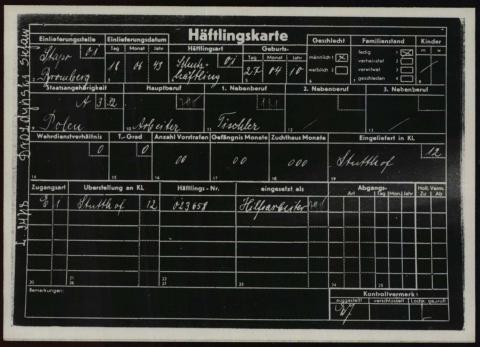 Häftlingskarte
Einlieferungsstelle 01
Stapo
Bromberg
Einlieferungsdatum
Tag Monat Jahr
18 06 43
Häftlingsart 01
Schutz-
häftling
Geburts-
Tag Monat Jahr
27 04 10
Geschlecht
männlich 1 x
weiblich 2
Familienstand
ledig x
verheiratet
verwitwet
geschieden
Kinder
Staatsangehörigkeit
Polen
Hauptberuf
Arbeiter
1. Nebenberuf
Tischler
2. Nebenberuf
3. Nebenberuf
Wehrdienstverhältnis 0
T.-Grad 0
Anzahl Vorstrafen
00
Gefängnis Monate
00
Zuchthaus Monate
000
Eingeliefert in KL
12
Stutthof
Zugangsart
E 1
Überstellung an KL
Stutthof 12
Häftlings - Nr.
023658
eingesetzt als
Hilfsarbeiter
Abgangs-
Art Tag Mon. Jahr
Holl. Verm.
Zu Ab
Bemerkungen:
Kontrollvermerk:
ausgestellt verschlüsselt Lochk. geprüft